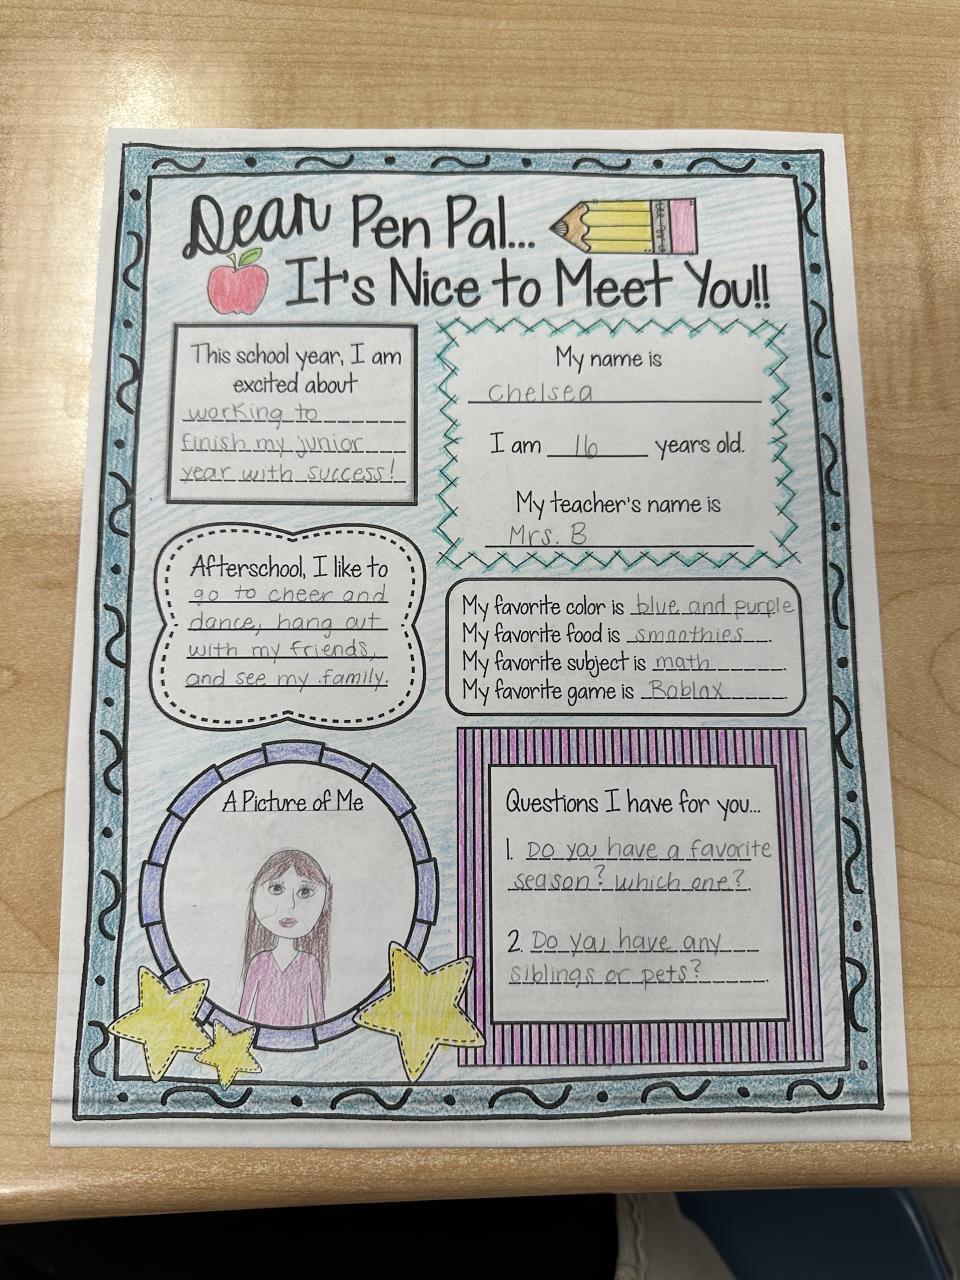 Dear Pen Pal...
It's Nice to Meet You!!
This school year, I am
excited about
working to
finish my junior
year with success!
My name is
Chelsea
I am 16 years old.
My teacher's name is
Mrs. B
Afterschool, I like to
go to cheer and
dance, hang out
with my friends,
and see my family.
My favorite color is blue and purple
My favorite food is smoothies.
My favorite subject is math.
My favorite game is Roblox.
A Picture of Me
Questions I have for you...
1. Do you have a favorite
season? which one?.
2. Do you have any
siblings or pets?.